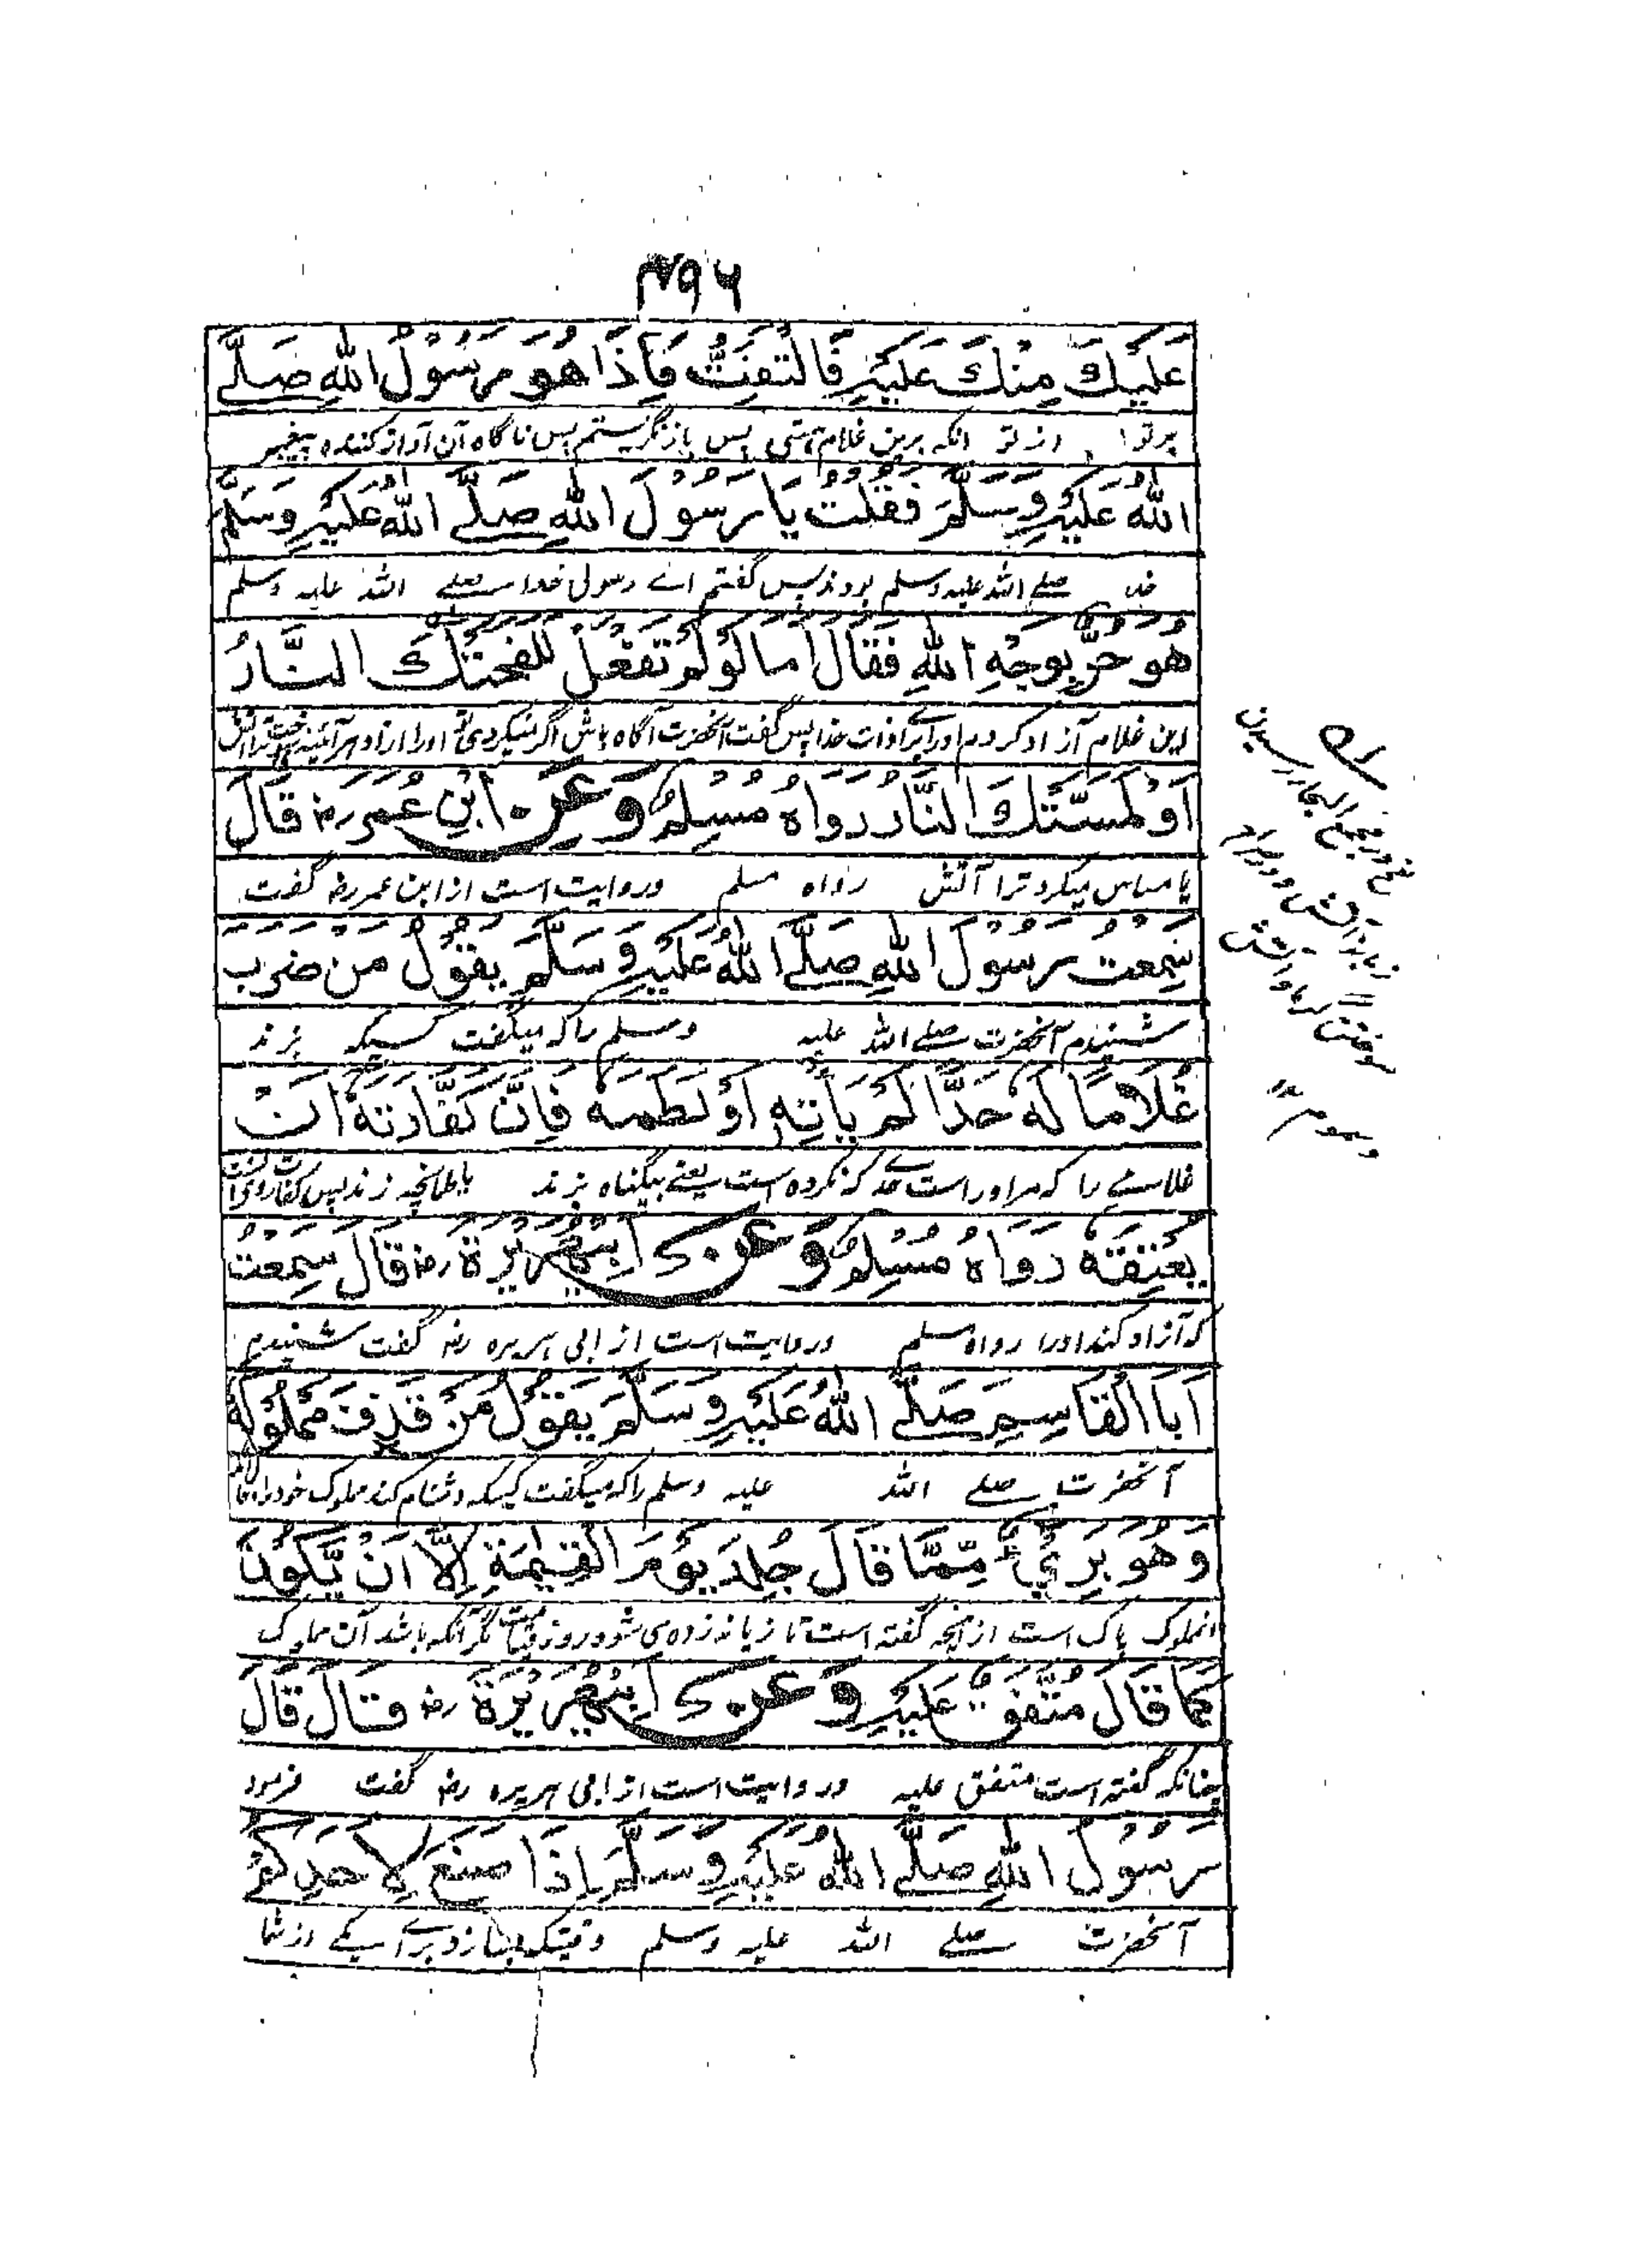 ۴۹۶
عَلَيْكَ مِنْكَ عَلَيْهِ فَالْتَفَتُّ فَاِذَا هُوَ رَسُوْلُ اللّٰهِ صَلَّے
بر تو از تو انکه برین غلام پس باز نگریستم پس ناگاه آن آواز کننده پیغمبر
اللّٰهُ عَلَيْهِ وَسَلَّمَ فَقُلْتُ يَا رَسُوْلَ اللّٰهِ صَلَّے اللّٰهُ عَلَيْهِ وَسَلَّمَ
صلے اللہ علیہ وسلم بودند پس گفتم اے رسول خدا صلے اللہ علیہ وسلم
هُوَ حُرٌّ بِوَجْهِ اللّٰهِ فَقَالَ اَمَا لَوْ لَمْ تَفْعَلْ لَلَفَحَتْكَ النَّارُ
این غلام آزاد کردم اورا براے ذات خدا پس گفت آنحضرت آگاه باش اگر نمیکردی تو اورا ازاد هرآئینه
اَوْ لَمَسَّتْكَ النَّارُ رَوَاهُ مُسْلِمٌ وَعَنِ ابْنِ عُمَرَ رضہ قَالَ
یا مساس میکرد ترا آتش رواه مسلم وروایت است از ابن عمر رضہ گفت
سَمِعْتُ رَسُوْلَ اللّٰهِ صَلَّے اللّٰهُ عَلَيْهِ وَسَلَّمَ يَقُوْلُ مَنْ ضَرَبَ
شنیدم آنحضرت صلے اللہ علیہ وسلم را که میگفت کسیکه بزند
غُلَامًا لَهُ حَدًّا لَمْ يَاْتِهِ اَوْ لَطَمَهُ فَاِنَّ كَفَّارَتَهُ اَنْ
غلامے را که مر اورا است حد که نکرده است یعنے بیگناه بزند یا طمانچه زند پس
يُعْتِقَهُ رَوَاهُ مُسْلِمٌ وَعَنْ اَبِيْ هُرَيْرَةَ رضہ قَالَ سَمِعْتُ
که آزاد کند اورا رواه مسلم وروایت است از ابی هریره رضہ گفت شنیدم
اَبَا الْقَاسِمِ صَلَّے اللّٰهُ عَلَيْهِ وَسَلَّمَ يَقُوْلُ مَنْ قَذَفَ مَمْلُوْكَهُ
آنحضرت صلے اللہ علیہ وسلم را که میگفت کسیکه دشنام کند مملوک خود را
وَهُوَ بَرِيْءٌ مِّمَّا قَالَ جُلِدَ يَوْمَ الْقِيٰمَةِ اِلَّا اَنْ يَّكُوْنَ
پاک است از انچه گفته است تازیانه زده می شود روز قیامت مگر آنکه باشد آن مملوک
كَمَا قَالَ مُتَّفَقٌ عَلَيْهِ وَعَنْ اَبِيْ هُرَيْرَةَ رضہ قَالَ قَالَ
چنانکه گفته است متفق علیہ وروایت است از ابی هریره رضہ گفت فرمود
رَسُوْلُ اللّٰهِ صَلَّے اللّٰهُ عَلَيْهِ وَسَلَّمَ اِذَا صَنَعَ لِاَحَدِكُمْ
آنحضرت صلے اللہ علیہ وسلم وقتیکه بسازد براے یکے از شما